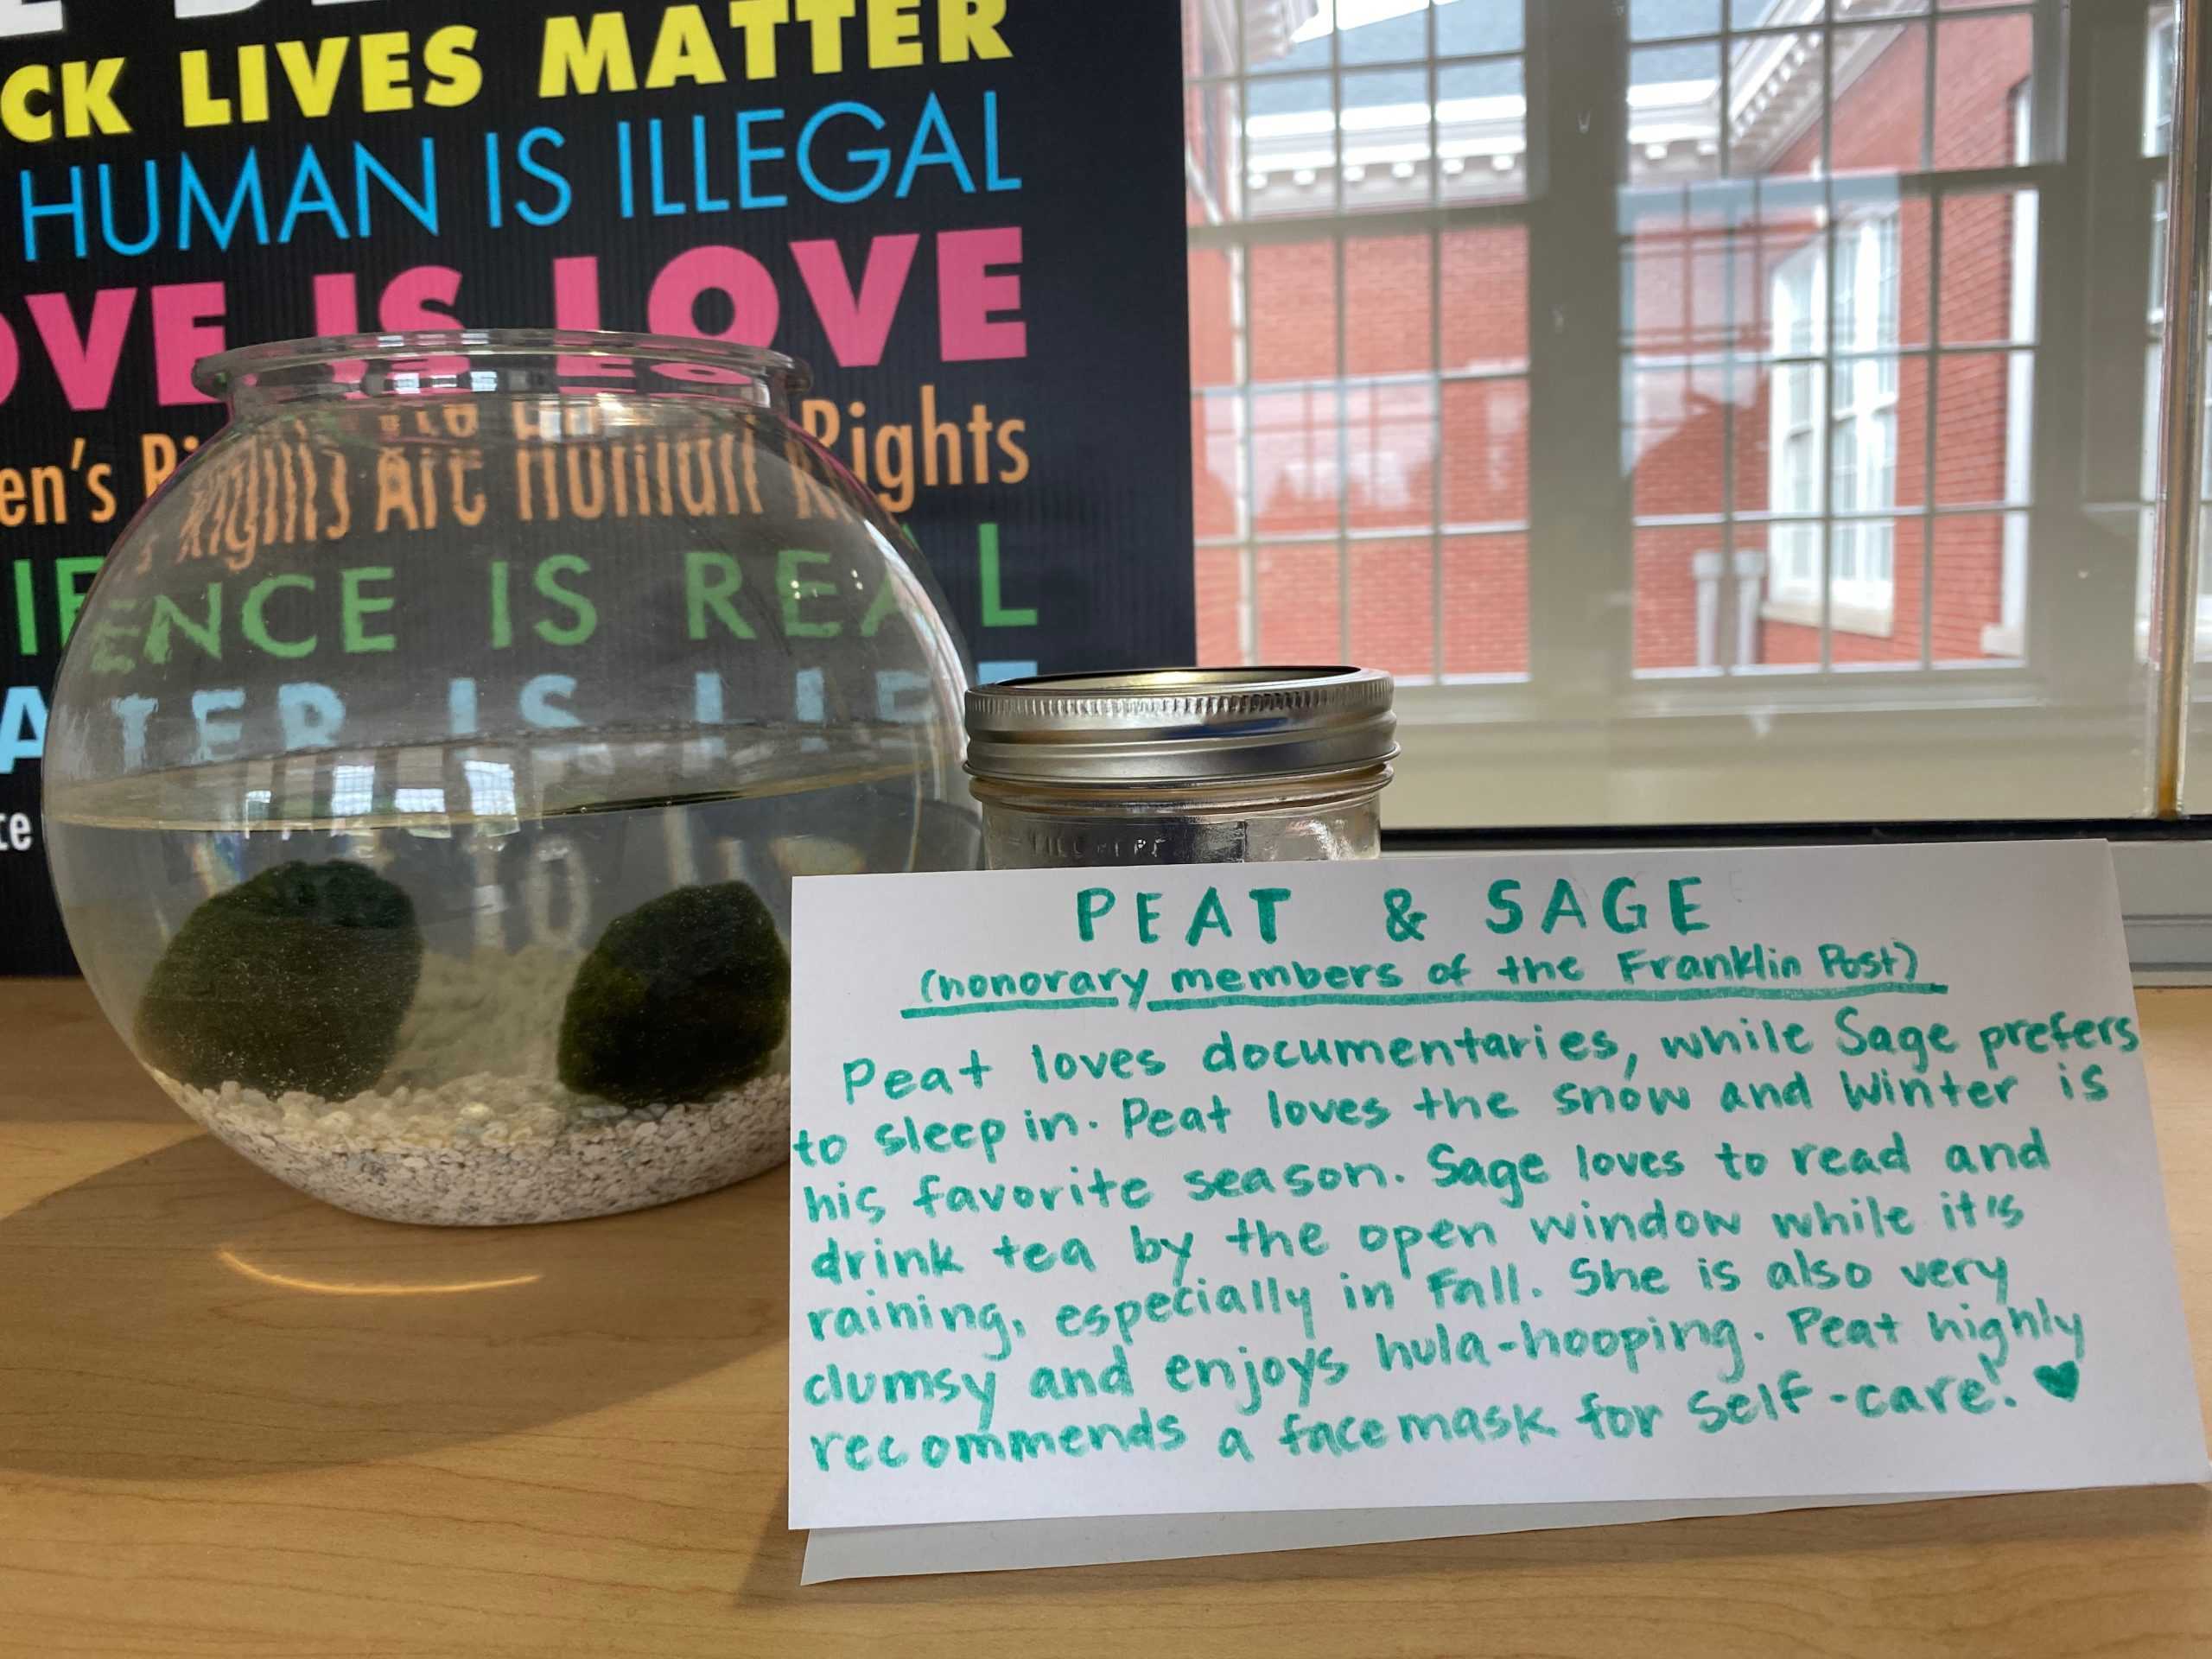 CK LIVES MATTER
HUMAN IS ILLEGAL
OVE IS LOVE
en's Rights Are Human Rights
IENCE IS REAL
ATER IS LIFE
PEAT & SAGE
(honorary members of the Franklin Post)
Peat loves documentaries, while Sage prefers
to sleep in. Peat loves the snow and Winter is
his favorite season. Sage loves to read and
drink tea by the open window while it's
raining, especially in Fall. She is also very
clumsy and enjoys hula-hooping. Peat highly
recommends a facemask for self-care! ♥